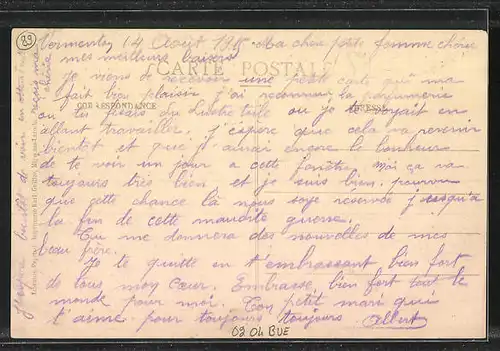 89
Vermenton 14 Août 1915 Ma chère petite femme chérie
mes meilleurs baisers
CARTE POSTALE
je viens de recevoir une petite carte qui m'a
fait bien plaisir j'ai reconnu la parfumerie
CORRESPONDANCE
ADRESSE
ou tu faisais du lustre toile ou je te voyait en
allant travailler. J'espère que cela va revenir
bientot et que j'aurai encore le bonheur
de te voir un jour a cette fenêtre Moi ça va
toujours très bien et je suis bien. pourvu
que cette chance là nous soye reservé jusqu'a
la fin de cette maudite guerre.
Tu me donnera des nouvelles de mes
beau frère.
Je te quitte en t'embrassant bien fort
de tous mon cœur. Embrasse, bien fort tout le
monde pour moi. Ton petit mari qui
t'aime pour toujours toujours Albert
02 04 BUE